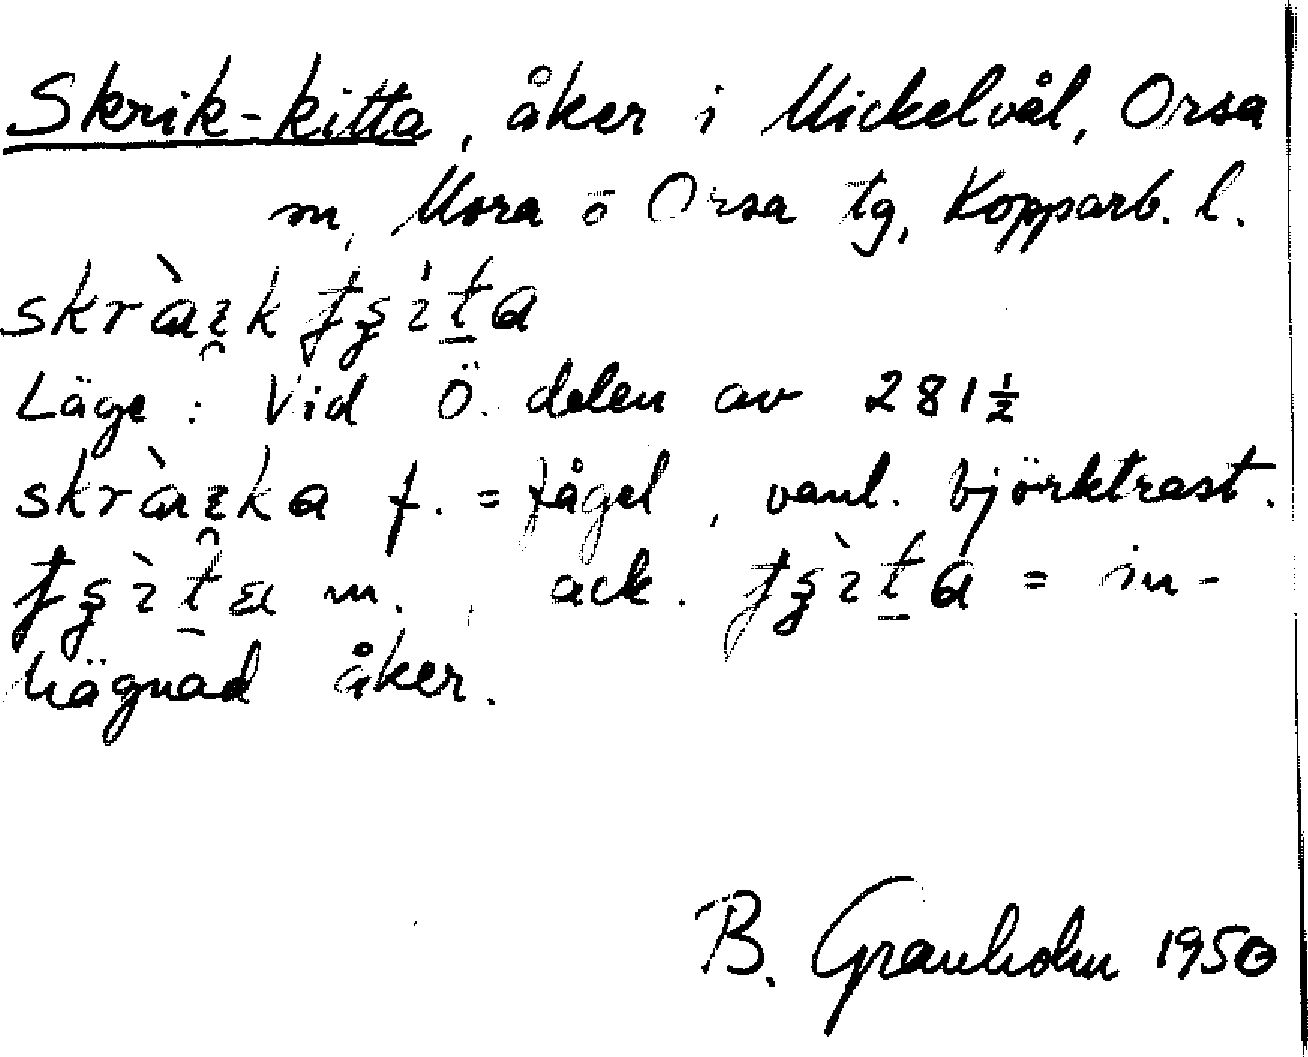 Skrik-kitta, åker i Mickelvål, Orsa
m, Mora o Orsa tg, Kopparb. l.
Läge: Vid Ö. delen av 281 ½
f. = fågel, vanl. björktrast.
m., ack. = in-
hägnad åker.
B. Granholm 1950